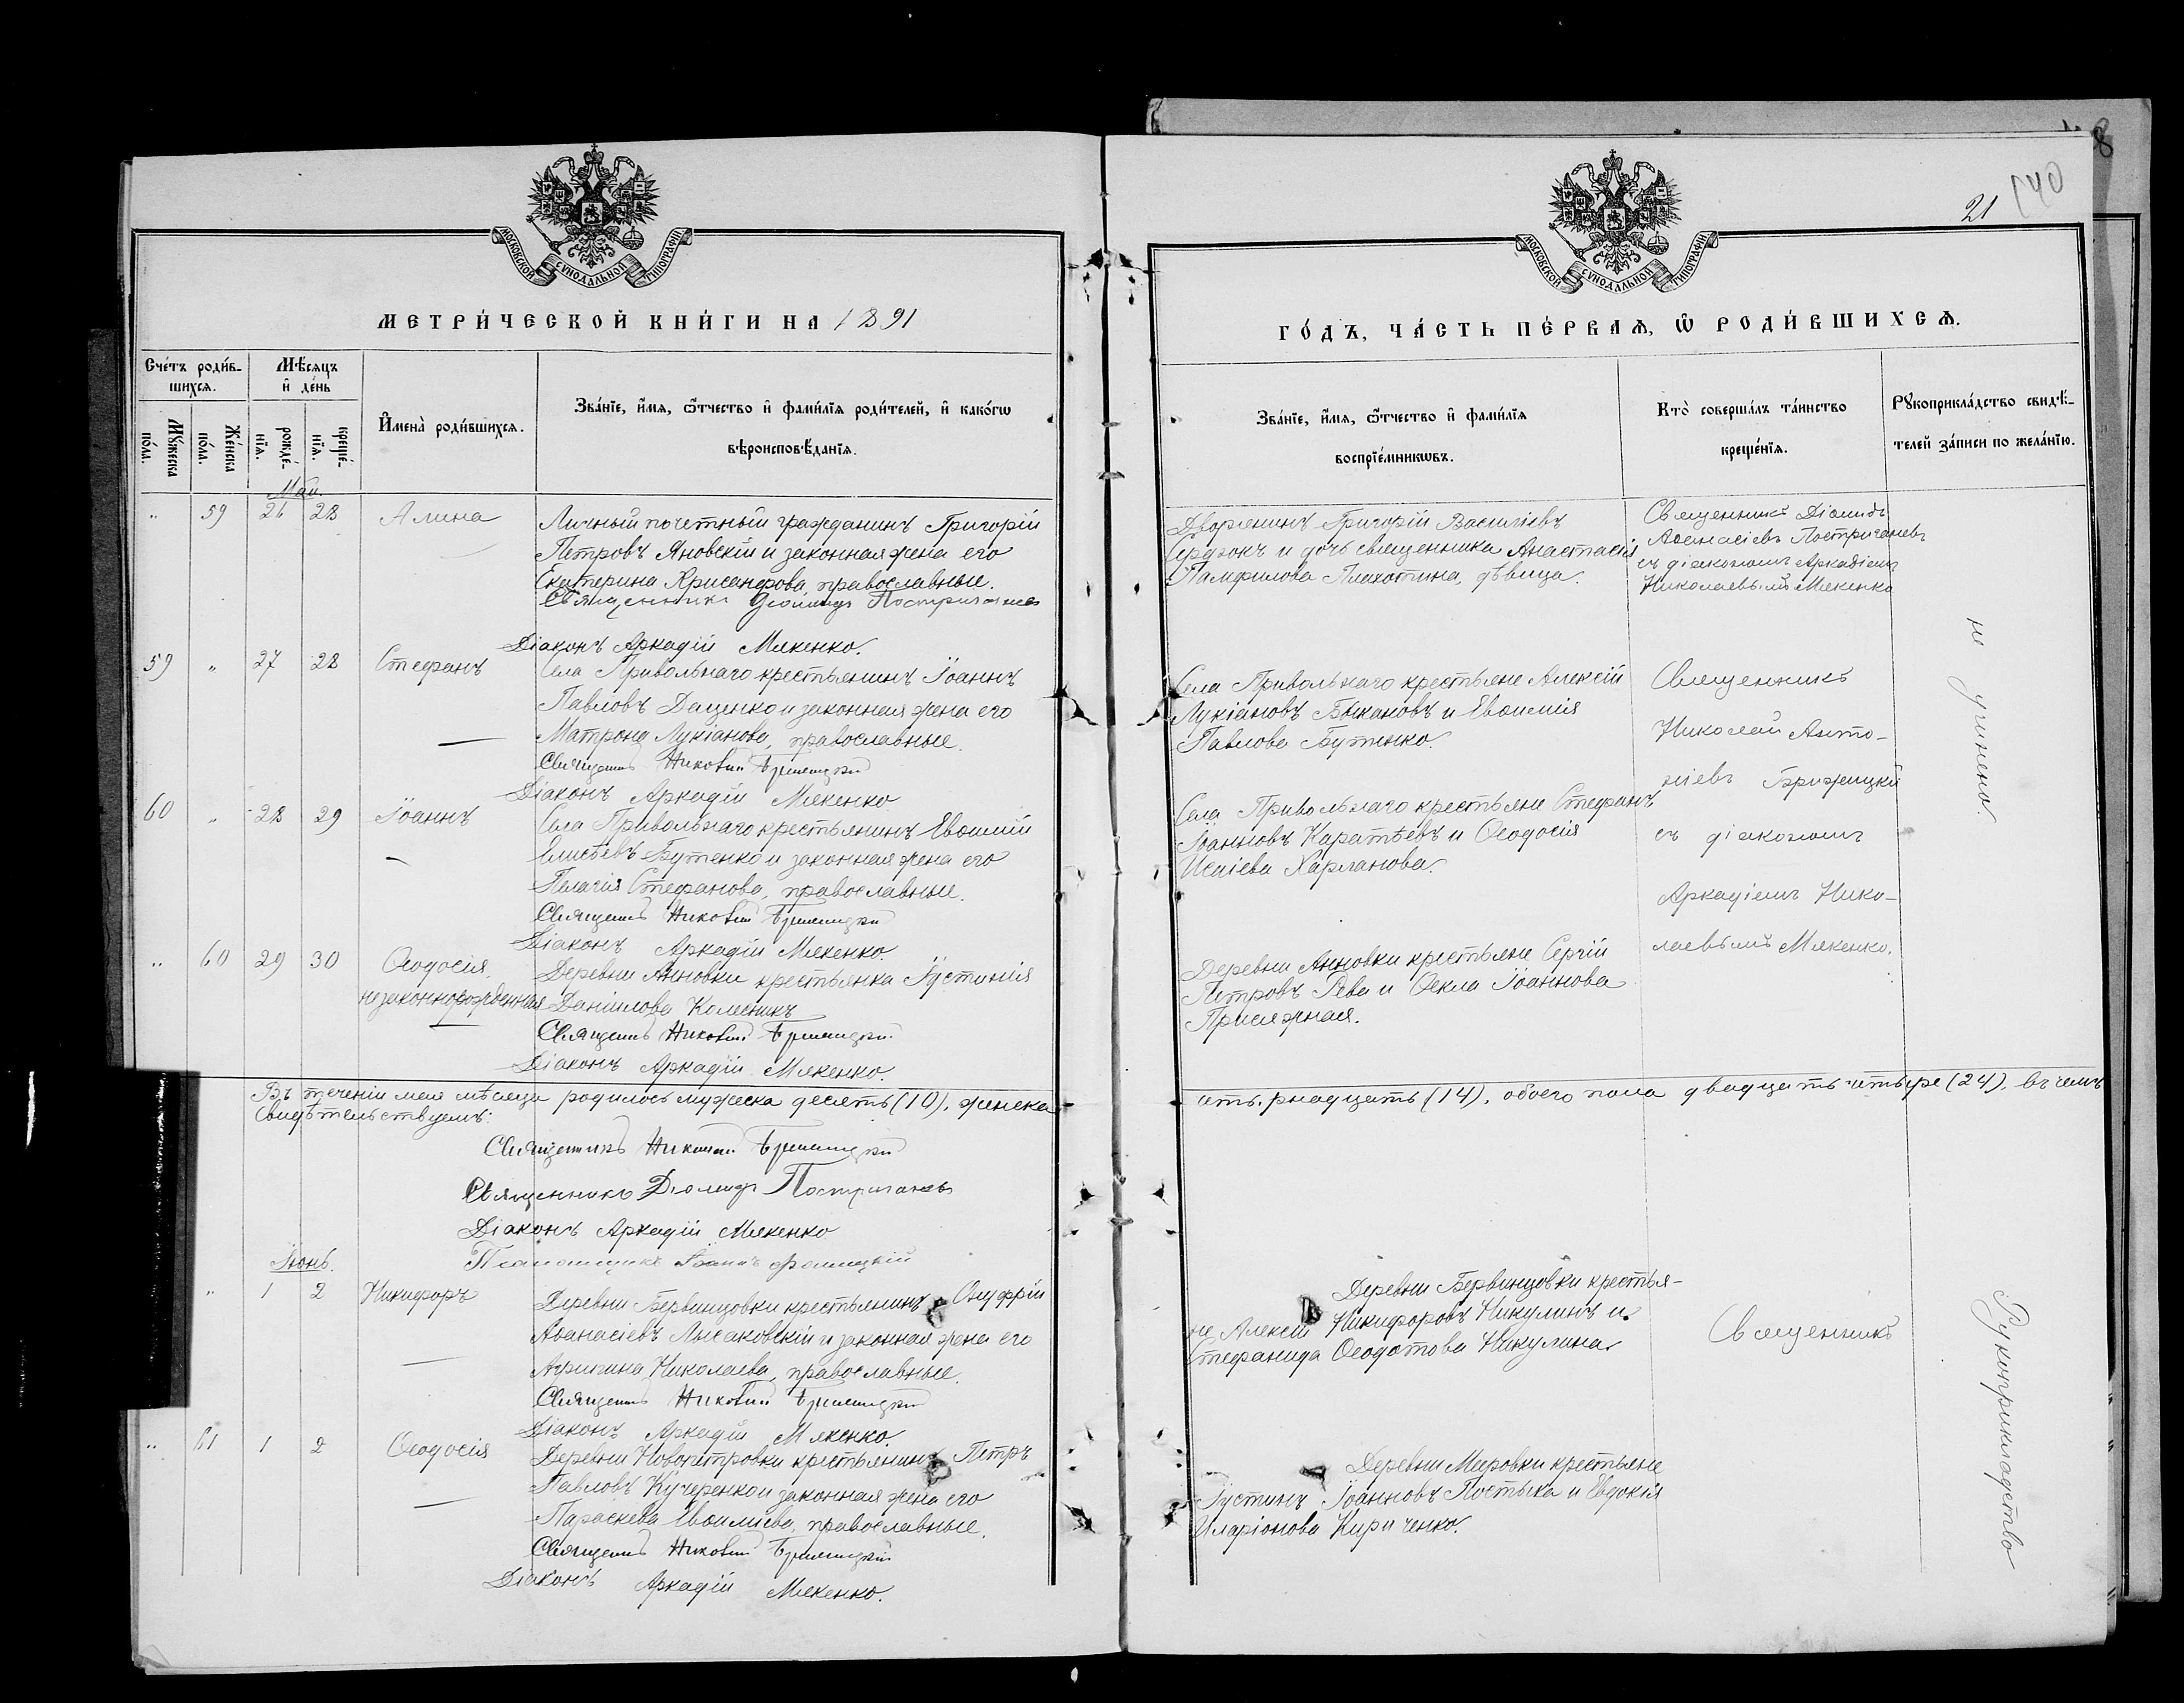 8
21
140
МОСКОВСКОЙ СѴНОДАЛЬНОЙ ТИПОГРАФІИ
МОСКОВСКОЙ СѴНОДАЛЬНОЙ ТИПОГРАФІИ
МЕТРИ́ЧЕСКОЙ КНИ́ГИ НА 1891
ГО́ДЪ, ЧА́СТЬ ПЕ́РВАѦ, Ѡ҆ РОДИ́ВШИХСѦ.
Сче́тъ роди́в-
шихсѧ.
Мѣ́сѧцъ
и҆ де́нь
Мꙋ́жеска
по́ла.
Же́нска
по́ла.
рожде́-
нїѧ.
креще́-
нїѧ.
И҆мена̀ роди́вшихсѧ.
Зва́нїе, и҆́мѧ, ѻ҆́тчество и҆ фами́лїѧ роди́телей, и҆ како́гѡ
вѣроисповѣ́данїѧ.
Зва́нїе, и҆́мѧ, ѻ҆́тчество и҆ фами́лїѧ
воспрїе́мникѡвъ.
Кто̀ соверша́лъ та́инство
креще́нїѧ.
Рꙋкоприкла́дство свидѣ́-
телей за́писи по жела́нїю.
Май.
" 59 26 28 Алина
Личный почетный гражданинъ Григорій
Петровъ Яновскій и законная жена его
Екатерина Хрисанфова, православные.
Священникъ Діомидъ Постригачевъ
Діаконъ Аркадій Мякенко.
Дворянинъ Григорій Васильевъ
Сердюкъ и дочь священника Анастасія
Памфилова Плахотина, дѣвица.
Священникъ Діомидъ
Аѳанасіевъ Постригачевъ
съ діакономъ Аркадіемъ
Николаевымъ Мякенко
59 " 27 28 Стефанъ
Села Привольнаго крестьянинъ Іоаннъ
Павловъ Даценко и законная жена его
Матрона Лукіанова, православные.
Священникъ Николай
Діаконъ Аркадій Мякенко
Села Привольнаго крестьяне Алексій
Лукіановъ Быкановъ и Евѳимія
Павлова Бутенко.
Священникъ
Николай Анто-
ніевъ Бржицкій
съ діакономъ
Аркадіемъ Нико-
лаевымъ Мякенко.
не учинено.
60 " 28 29 Іоаннъ
Села Привольнаго крестьянинъ Евѳимій
Елисѣевъ Бутенко и законная жена его
Пелагія Стефанова, православные.
Священникъ Николай
Діаконъ Аркадій Мякенко.
Села Привольнаго крестьяне Стефанъ
Іоанновъ Каратѣевъ и Ѳеодосія
Исаіева Харланова.
" 60 29 30 Ѳеодосія.
незаконнорожденная
Деревни Анновки крестьянка Іустинія
Даніилова Колесникъ
Священникъ Николай
Діаконъ Аркадій Мякенко.
Деревни Анновки крестьяне Сергій
Петровъ Рева и Ѳекла Іоаннова
Присяжная.
Въ теченіи мая мѣсяца родилось мужеска десять (10), женска четырнадцать (14), обоего пола двадцать четыре (24), въ чемъ
свидѣтельствуемъ:
Священникъ Николай
Священникъ Діомидъ Постригачевъ
Діаконъ Аркадій Мякенко
Псаломщикъ Іоаннъ
Іюнь.
" 1 2 Никифоръ
Деревни Бервинцовки крестьянинъ Онуфрій
Аѳанасіевъ Лысаковскій и законная жена его
Агрипина Николаева, православные.
Священникъ Николай
Діаконъ Аркадій Мякенко.
Деревни Бервинцовки крестья-
не Алексій Никифоровъ Никулинъ и
Стефанида Ѳеодотова Никулина.
Священникъ
Рукоприкладство
" 61 1 2 Ѳеодосія
Деревни Новопетровки крестьянинъ Петръ
Павловъ Кучеренко и законная жена его
Параскева Евѳиміева, православные.
Священникъ Николай
Діаконъ Аркадій Мякенко.
Деревни Мировки крестьяне
Іустинъ Іоанновъ Постыка и Евдокія
Иларіонова Кириченко.